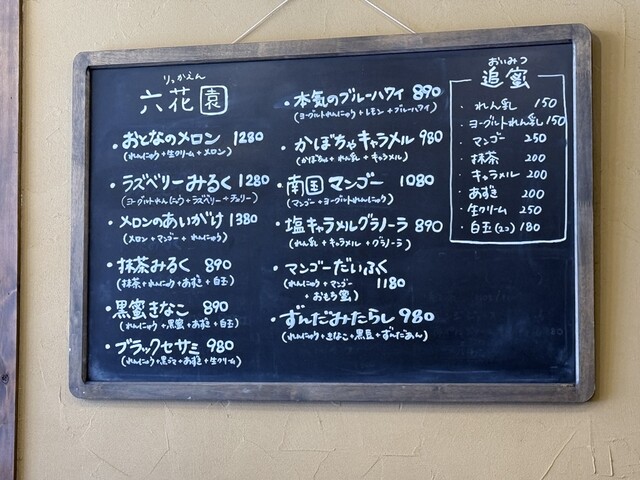 りっかえん
六花園
・おとなのメロン 1280
(れんにゅう+生クリーム+メロン)
・ラズベリーみるく 1280
(ヨーグルトれんにゅう+ラズベリー+チェリー)
・メロンのあいがけ 1380
(メロン+マンゴー+れんにゅう)
・抹茶みるく 890
(抹茶+れんにゅう+あずき+白玉)
・黒蜜きなこ 890
(れんにゅう+黒蜜+あずき+白玉)
・ブラックセサミ 980
(れんにゅう+黒ゴマ+あずき+生クリーム)
・本気のブルーハワイ 890
(ヨーグルトれんにゅう+レモン+ブルーハワイ)
・かぼちゃキャラメル 980
(かぼちゃ+れん乳+キャラメル)
・南国マンゴー 1080
(マンゴー+ヨーグルトれんにゅう)
・塩キャラメルグラノーラ 890
(れん乳+キャラメル+グラノーラ)
・マンゴーだいふく
(れんにゅう+マンゴー 1180
+おもち蜜)
・ずんだみたらし 980
(れんにゅう+きなこ+黒豆+ずんだあん)
おいみつ
追蜜
・れん乳 150
・ヨーグルトれん乳 150
・マンゴー 250
・抹茶 200
・キャラメル 200
・あずき 200
・生クリーム 250
・白玉(2コ) 180